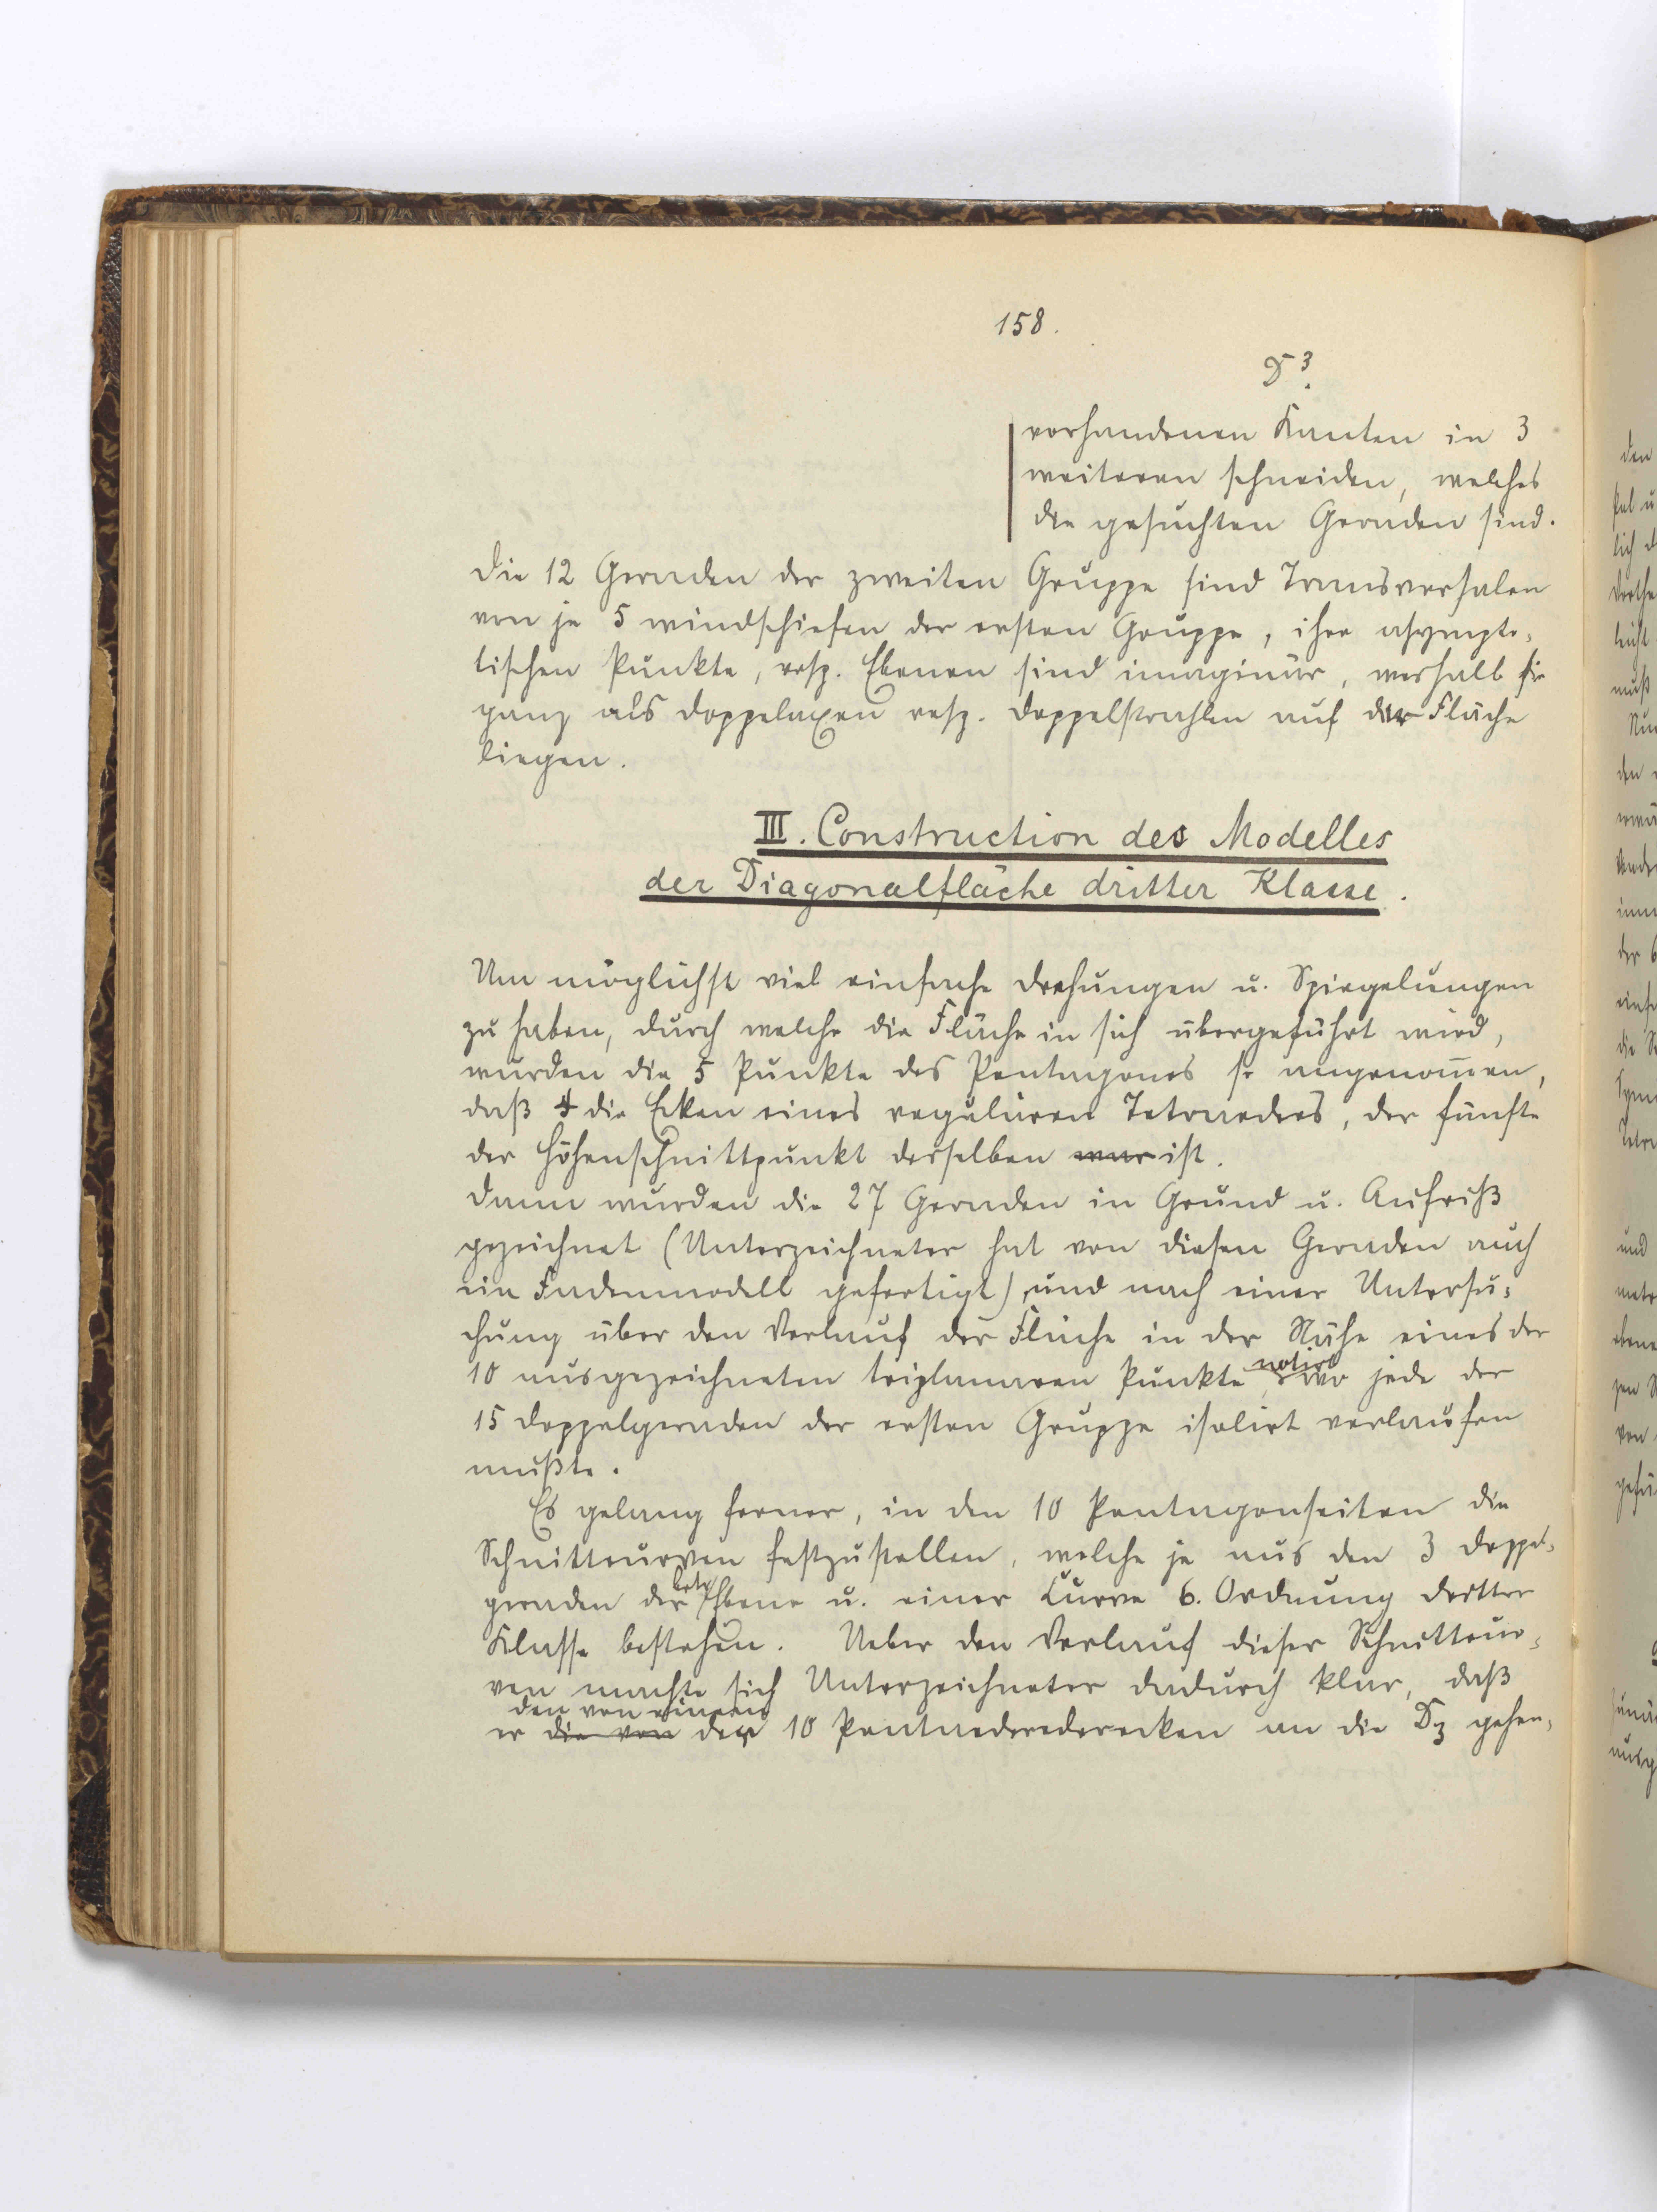 158.
D³.
vorhandenen Kanten in 3
weiteren schneiden, welches
die gesuchten Geraden sind.
Die 12 Geraden der zweiten Gruppe sind Transversalen
von je 5 windschiefen der ersten Gruppe, ihre asympto-
tischen Punkte, resp. Ebenen sind imaginär, weshalb sie
ganz als Doppelaxen resp. Doppelstrahlen auf der Fläche
liegen.
III. Construction des Modelles
der Diagonalfläche dritter Klasse.
Um möglichst viel einfache Drehungen u. Spiegelungen
zu haben, durch welche die Fläche in sich übergeführt wird,
wurden die 5 Punkte des Pentagones so angenom̄en,
daß 4 die Ecken eines regulären Tetraedres, der fünfte
der Höhenschnittpunkt desselben war ist.
Dann wurden die 27 Geraden in Grund u. Aufriß
gezeichnet (Unterzeichneter hat von diesen Geraden auch
ein Fadenmodell gefertigt), und nach einer Untersu-
chung über den Verlauf der Fläche in der Nähe eines der
10 ausgezeichneten triplanaren Punkte, notirt wo jede der
15 Doppelgeraden der ersten Gruppe isolirt verlaufen
mußte.
Es gelang ferner, in den 10 Pentagonseiten die
Schnittcurven festzustellen, welche je aus den 3 Doppel-
geraden der betr. Ebene u. einer Curve 6. Ordnung dritter
Klasse bestehen. Ueber den Verlauf dieser Schnittcur-
ven machte sich Unterzeichneter dadurch klar, daß
den von einem
er die von der 10 Pentaederederecken an die D₃ gehen-